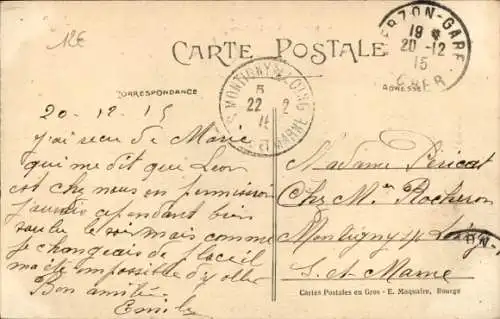 12€
CARTE POSTALE
CORRESPONDANCE
ADRESSE
RZON-GARE
19
20-12
15
CHER
MONTIGNY
LOING
5
22
15
ET MARNE
20-12-15
j'ai reçu de Marie
qui me dit que Leon
est chez nous en permission
j'aurais cependant bien
voulu le voir mais comme
je changeais de
m'a été impossible d'y aller
Bon amitié
Emile
Madame Péricat
Chez Mr Rocheron
Montigny s/ Loing
S. et Marne
Cartes Postales en Gros - E. Maquaire, Bourge